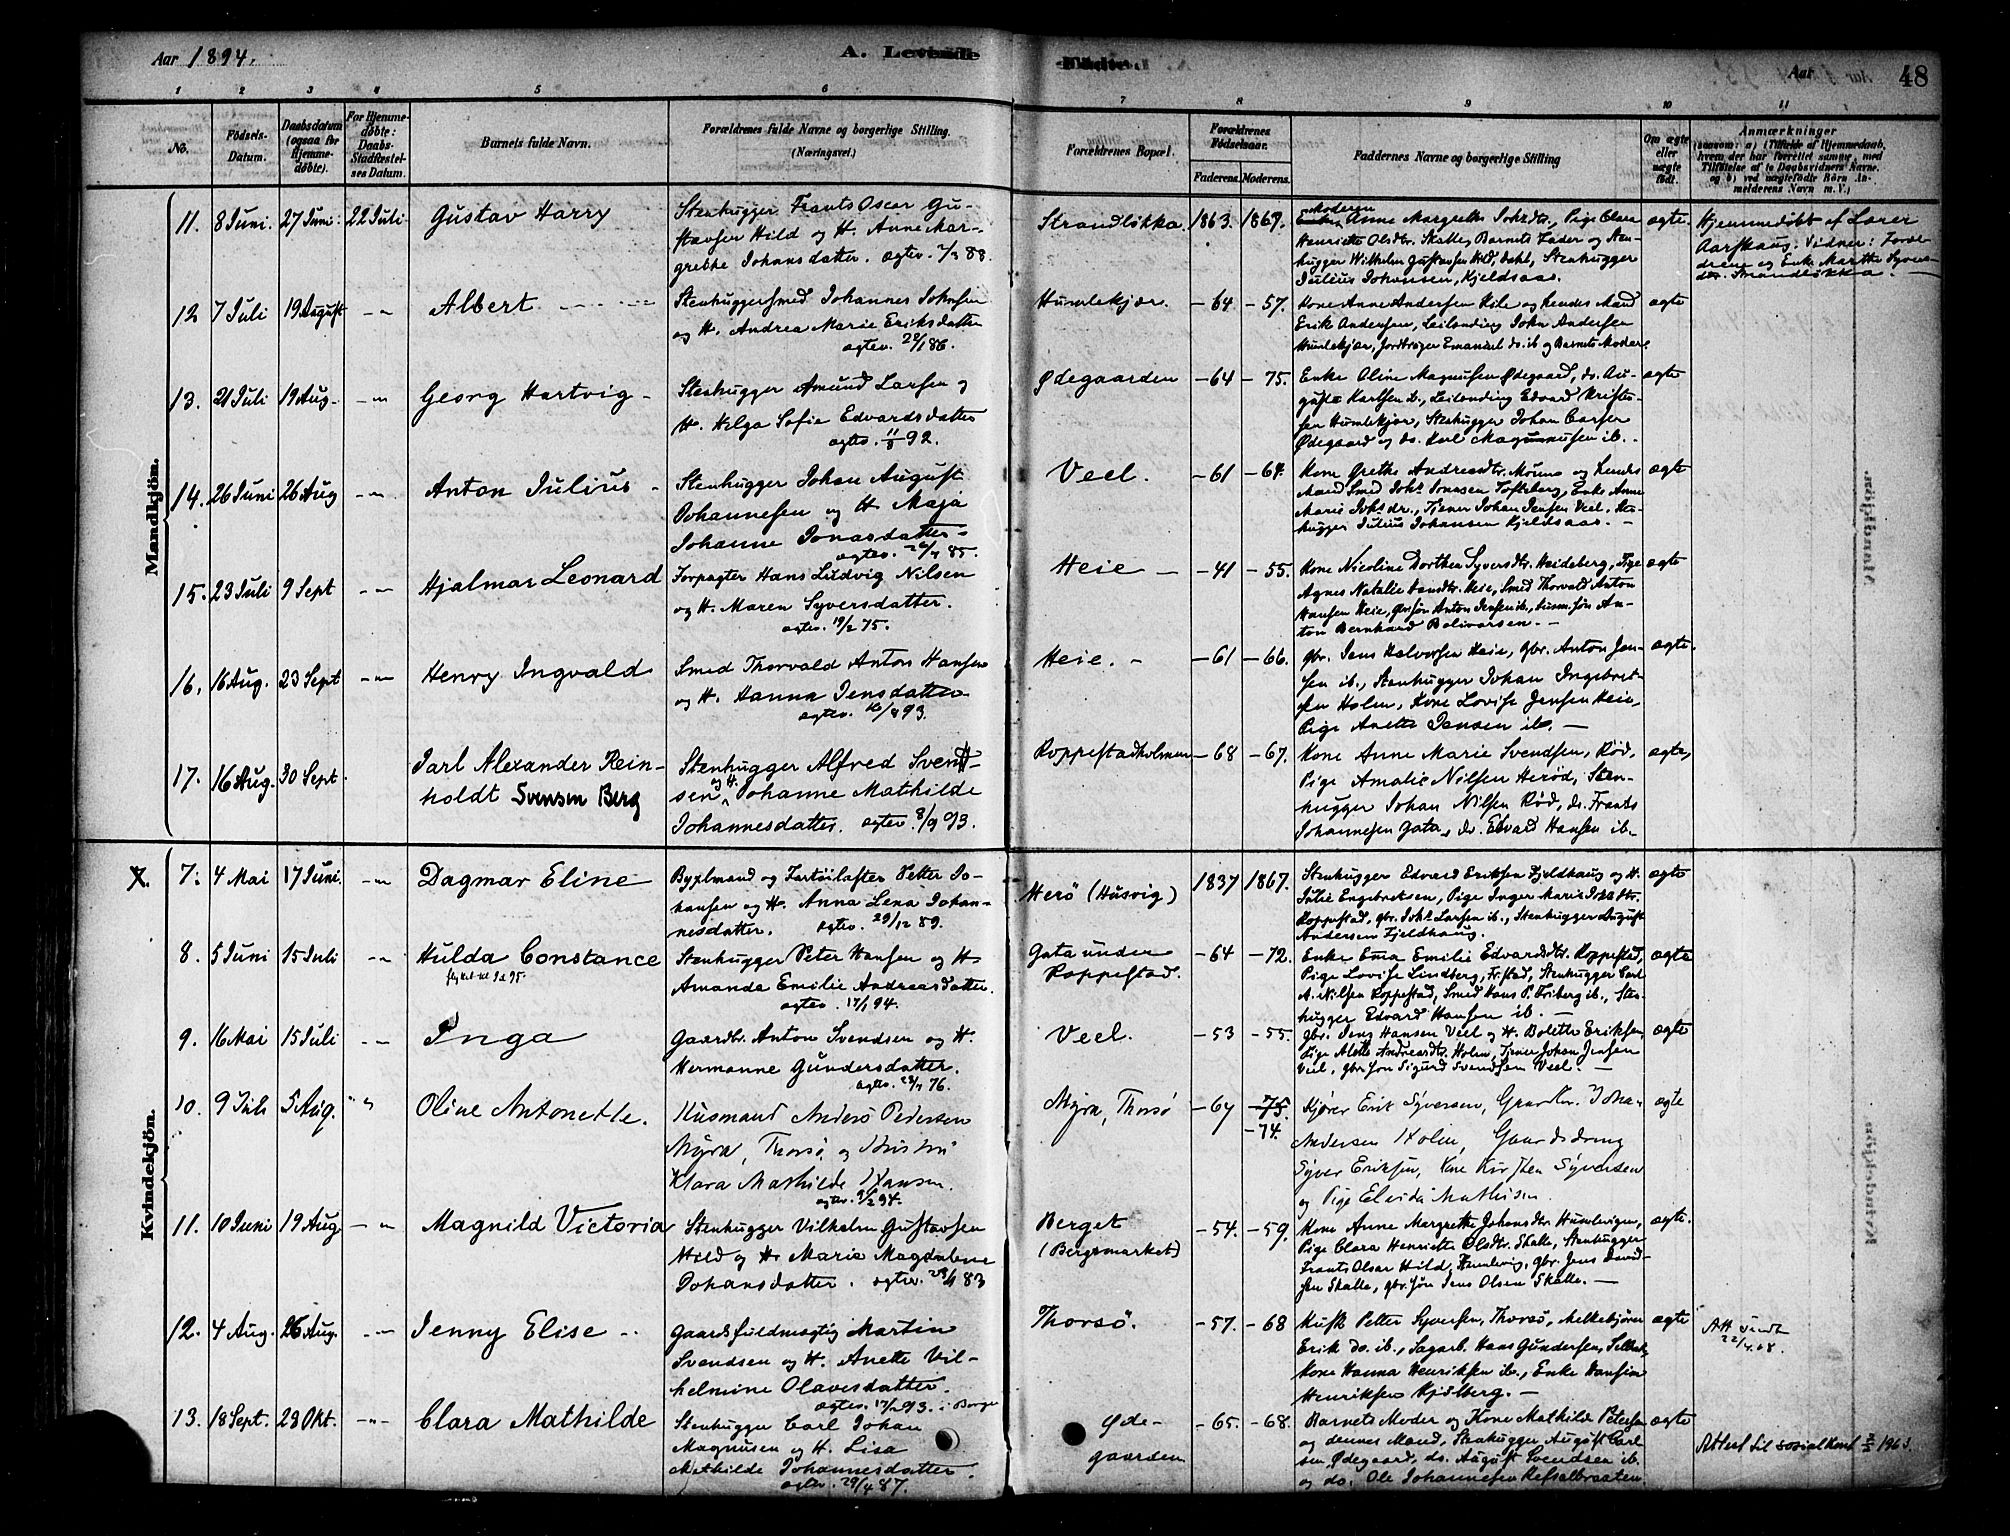 Aar 1894.
A. Levende
Fødte.
Aar
48
1 2 3 4 5 6 7 8 9 10 11
No.
Fødsels-Datum.
Daabsdatum (ogsaa for Hjemmedøbte).
For Hjemmedøbte: Daabs-Stadfæstelses Datum.
Barnets fulde Navn.
Forældrenes fulde Navne og borgerlige Stilling.
(Næringsvei.)
Forældrenes Bopæl.
Forældrenes Fødselsaar.
Faderens. Moderens.
Faddernes Navne og borgerlige Stilling
Om ægte eller uægte født.
Anmærkninger
(saasom: a) i Tilfælde af Hjemmedaab, hvem der har forrettet samme, med Tilføielse af to Daabsvidners Navne, og b) ved uægtefødte Børn Anmelderens Navn m. V.)
Mandkjön.
11. 8 Juni. 27 Juni. 22 Juli Gustav Harry
Stenhugger Frants Oscar Gu-
stavsen Hild og H. Anne Mar-
grethe Johansdatter. ægtev. 88.
Strandløkka. 1863. 1869.
Moderen Anne Margrethe Johsdtr., Pige Clara
Henriette Olsdtr. Skalle, Barnets Fader og Sten-
hugger Wilhelm Gustavsen Hild, Stenhugger
Julius Johansen, Kjeldsaas.
ægte.
Hjemmedøbt af Lærer
Aarskaug. Vidner: Foræl-
drene og Enke Marthe Syvers-
dtr. Strandløkka.
12 7 Juli 19 August - " - Albert
Stenhuggersmed Johannes Johnsen
og H. Andrea Marie Eriksdatter
ægtev. 86.
Humlekjær. - 64 - 57.
Kone Anne Andersen Hile og hendes Mand
Erik Andersen, Leilending John Andersen
Humlekjær, Jordbruger Emanuel do. ib og Barnets Moder.
ægte
13. 21 Juli 19 Aug. - " - Georg Hartvig -
Stenhugger Amund Larsen og
H. Helga Sofie Edvardsdatter
ægtev. 92.
Ødegaarden - 64 - 75.
Enke Oline Magnusen Ødegaard, do. Au-
gusta Karlsen ib., Leilending Edvard Kristen-
sen Humlekjær, Stenhugger Johan Larsen
Ødegaard og do. Karl Magnusen ib.
ægte
14. 26 Juni 26 Aug - " - Anton Julius -
Stenhugger Johan August
Johannesen og H. Maja
Johanne Jonasdatter -
ægtev. 85.
Veel. - 61 - 64.
Kone Grethe Andreasdtr. og hendes
Mand Smed Johs Jonasen Tofteberg, Enke Anne
Marie Johs dr., Tjener Johan Jensen Veel, Sten-
hugger Julius Johansen Kjeldsaas. -
ægte
15. 23 Juli 9 Sept - " - Hjalmar Leonard
Forpagter Hans Ludvig Nilsen
og H. Maren Syversdatter.
ægtev. 19/2 75.
Heie - - 41 - 55.
Kone Nicoline Dorthea Syversdtr. Heideberg, Pige
Agnes Natalie Heie, Smed Thorvald Anton
Hansen Heie, gbr.søn Anton Jensen ib., Søn An-
ton Bernhard Bolivarsen. -
ægte
16. 16 Aug. 23 Sept - " - Henry Ingvald
Smed Thorvald Anton Hansen
og H. Hanna Jensdatter
ægtev. 93.
Heie. - - 61 - 66.
gbr. Jens Halvorsen Heie, gbr. Anton Jen-
sen ib., Stenhugger Johan Ingebret-
sen Holm, Kone Lovise Jensen Heie,
Pige Anette Jensen ib. -
ægte.
17. 16 Aug. 30 Sept
Jarl Alexander Rein-
holdt Svensen Berg
Stenhugger Alfred Svend-
sen og H. Johanne Mathilde
Johannesdatter. ægtev. 8/9 93.
Roppestadholmen - 68 - 67.
Kone Anne Marie Svendsen, Rød,
Pige Amalie Nilsen Herød, Sten-
hugger Johan Nilsen Rød, do. Frants
Johannesen Gata, do. Edvard Hansen ib.
ægte,
Kvindekjön.
7. 4 Mai 17 Juni. - " - Dagmar Eline
Petter Jo-
hansen og H. Anna Lena Johan-
nesdatter. ægtev. 29/12 89.
Herö (Husvig) 1837 1867.
Stenhugger Edvard Eriksen Fjeldhaug og H.
Julie Engebretsen, Pige Inger Marie Johsdtr.
Roppestad, gbr. Johs Larsen ib., Stenhugger August
Andersen Fjeldhaug.
ægte
8. 5 Juni 15 Juli - " - Hulda Constance
Stenhugger Peter Hansen og H
Amanda Emilie Andreasdatter.
ægtev. 94.
Gata under
Roppestad. - 64 - 72.
Enke Ema Emilie Edvardsdtr. Roppestad,
Pige Lovise Lindberg, Fr.stad, Stenhugger Carl
A. Nilsen Roppestad, Smed Hans P. Friberg ib., Sten-
hugger Edvard Hansen ib. -
ægte
9. 16 Mai 15 Juli - " - Inga
Gaardbr. Anton Svendsen og H.
Hermanne Gundersdatter.
ægtev. 76.
Veel. - 53 - 55.
gbr. Jens Hansen Veel og H. Bolette Eriksen,
Pige Alette Andreasdtr. Holm, Tjener Johan Jensen
Veel, gbr.søn Sigurd Svendsen Veel. -
ægte
10. 9 Juli 5 Aug. " " Oline Antonette.
Husmand Anders Pedersen
Myra, Thorsø, og Hustru
Klara Mathilde Hansen.
ægtev. 94.
Myra, Thorsø - 67 - 75.
- 74.
Kjører Erik Syversen, Gaardbr. Johan
Andersen Holm, Gaardsdreng
Syver Eriksen, Kone Kirsten Syversen
og Pige Elvida Mathisen.
ægte
11. 10 Juni 19 Aug. - " Magnild Victoria
Stenhugger Vilhelm Gustavsen
Hild og H. Maria Magdalene
Johansdatter. ægtev. 83
Berget
(Bergsmarket) - 54. - 59.
Kone Anne Margrethe Johansdtr. Humlevigen,
Pige Clara Henriette Olsdtr. Skalle, Stenhugger
Frants Oscar Hild, Humlevig, gbr. Jens David-
sen Skalle, gbr.søn Jens Olsen Skalle. -
ægte.
12. 4 Aug. 26 Aug. - " - Jenny Elise
Gaardsfuldmægtig Martin
Svendsen og H. Anette Vil-
helmine Olavesdatter.
ægtev. 93. i Borge
Thorsø. - 57. - 68
Kusk Petter Syversen, Thorsø, Melkekjører
Erik do. ib., Sagarb. Hans Gundersen,
Kone Hanna Henriksen ib., Enke Hansine
Henriksen Kjølberg. -
ægte
Att. sendt
22/4 08.
13. 18 Sept. 23 Okt. - " - Clara Mathilde
Stenhugger Carl Johan
Magnusen og H. Lisa
Mathilde Johannesdatter.
ægtev. 29/4 87.
Øde-
gaarden - 65. - 68.
Barnets Moder og Kone Mathilde Petersen
og dennes Mand, Stenhugger August Carl-
sen Ødegaard, do. August Svendsen ib.
og do. Ole Johannesen Refsalbraaten.
ægte
Attest til sosialkont. 1963.